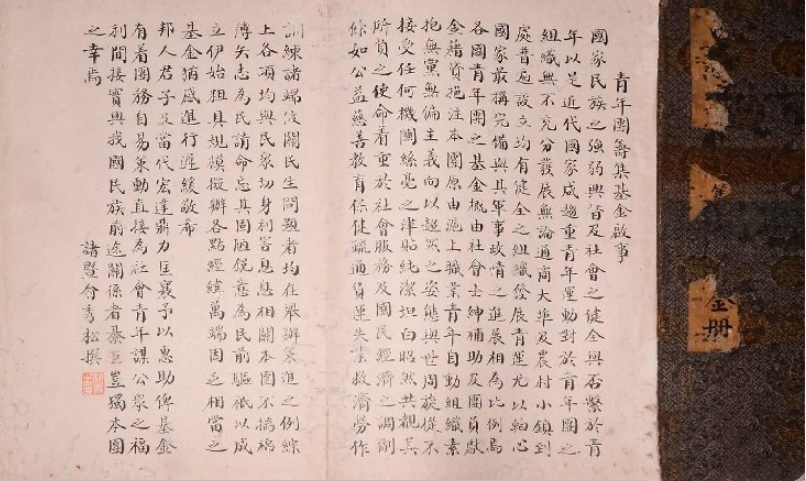 青年團籌集基金啟事
國家民族之強弱興替及社會之健全與否繫於青
年以是近代國家咸趨重青年運動對於青年團之
組織無不充分發展無論通商大埠及農村小鎮到
處普遍設立均有健全之組織發展青運尤以軸心
國家最稱完備與其軍事政情之進展相為比例焉
各國青年團之基金概由社會士紳補助及團員獻
金藉資挹注本團原由滬上職業青年自動組織素
抱無黨無偏主義向以超然之姿態與世周旋從不
接受任何機關絲毫之津貼純潔坦白昭然共觀其
所負之使命着重於社會服務及國民經濟之調劑
餘如公益慈善教育保健疏通貨運失業救濟勞作
訓練諸端攸關民生問題者均在舉辦策進之例綜
上各項均與民眾切身利害息息相關本團不揣棉
薄矢志為民請命忘其固陋銳意為民前驅祇以成
立伊始粗具規模擬辦各點經緯萬端因乏相當之
基金猶感進行遲緩敬希
邦人君子及當代宏達鼎力匡襄予以惠助俾基金
有着團務自易策動直接為社會青年謀公眾之福
利間接實與我國民族前途關係者綦巨豈獨本團
之幸焉
諸暨俞秀松撰
金册